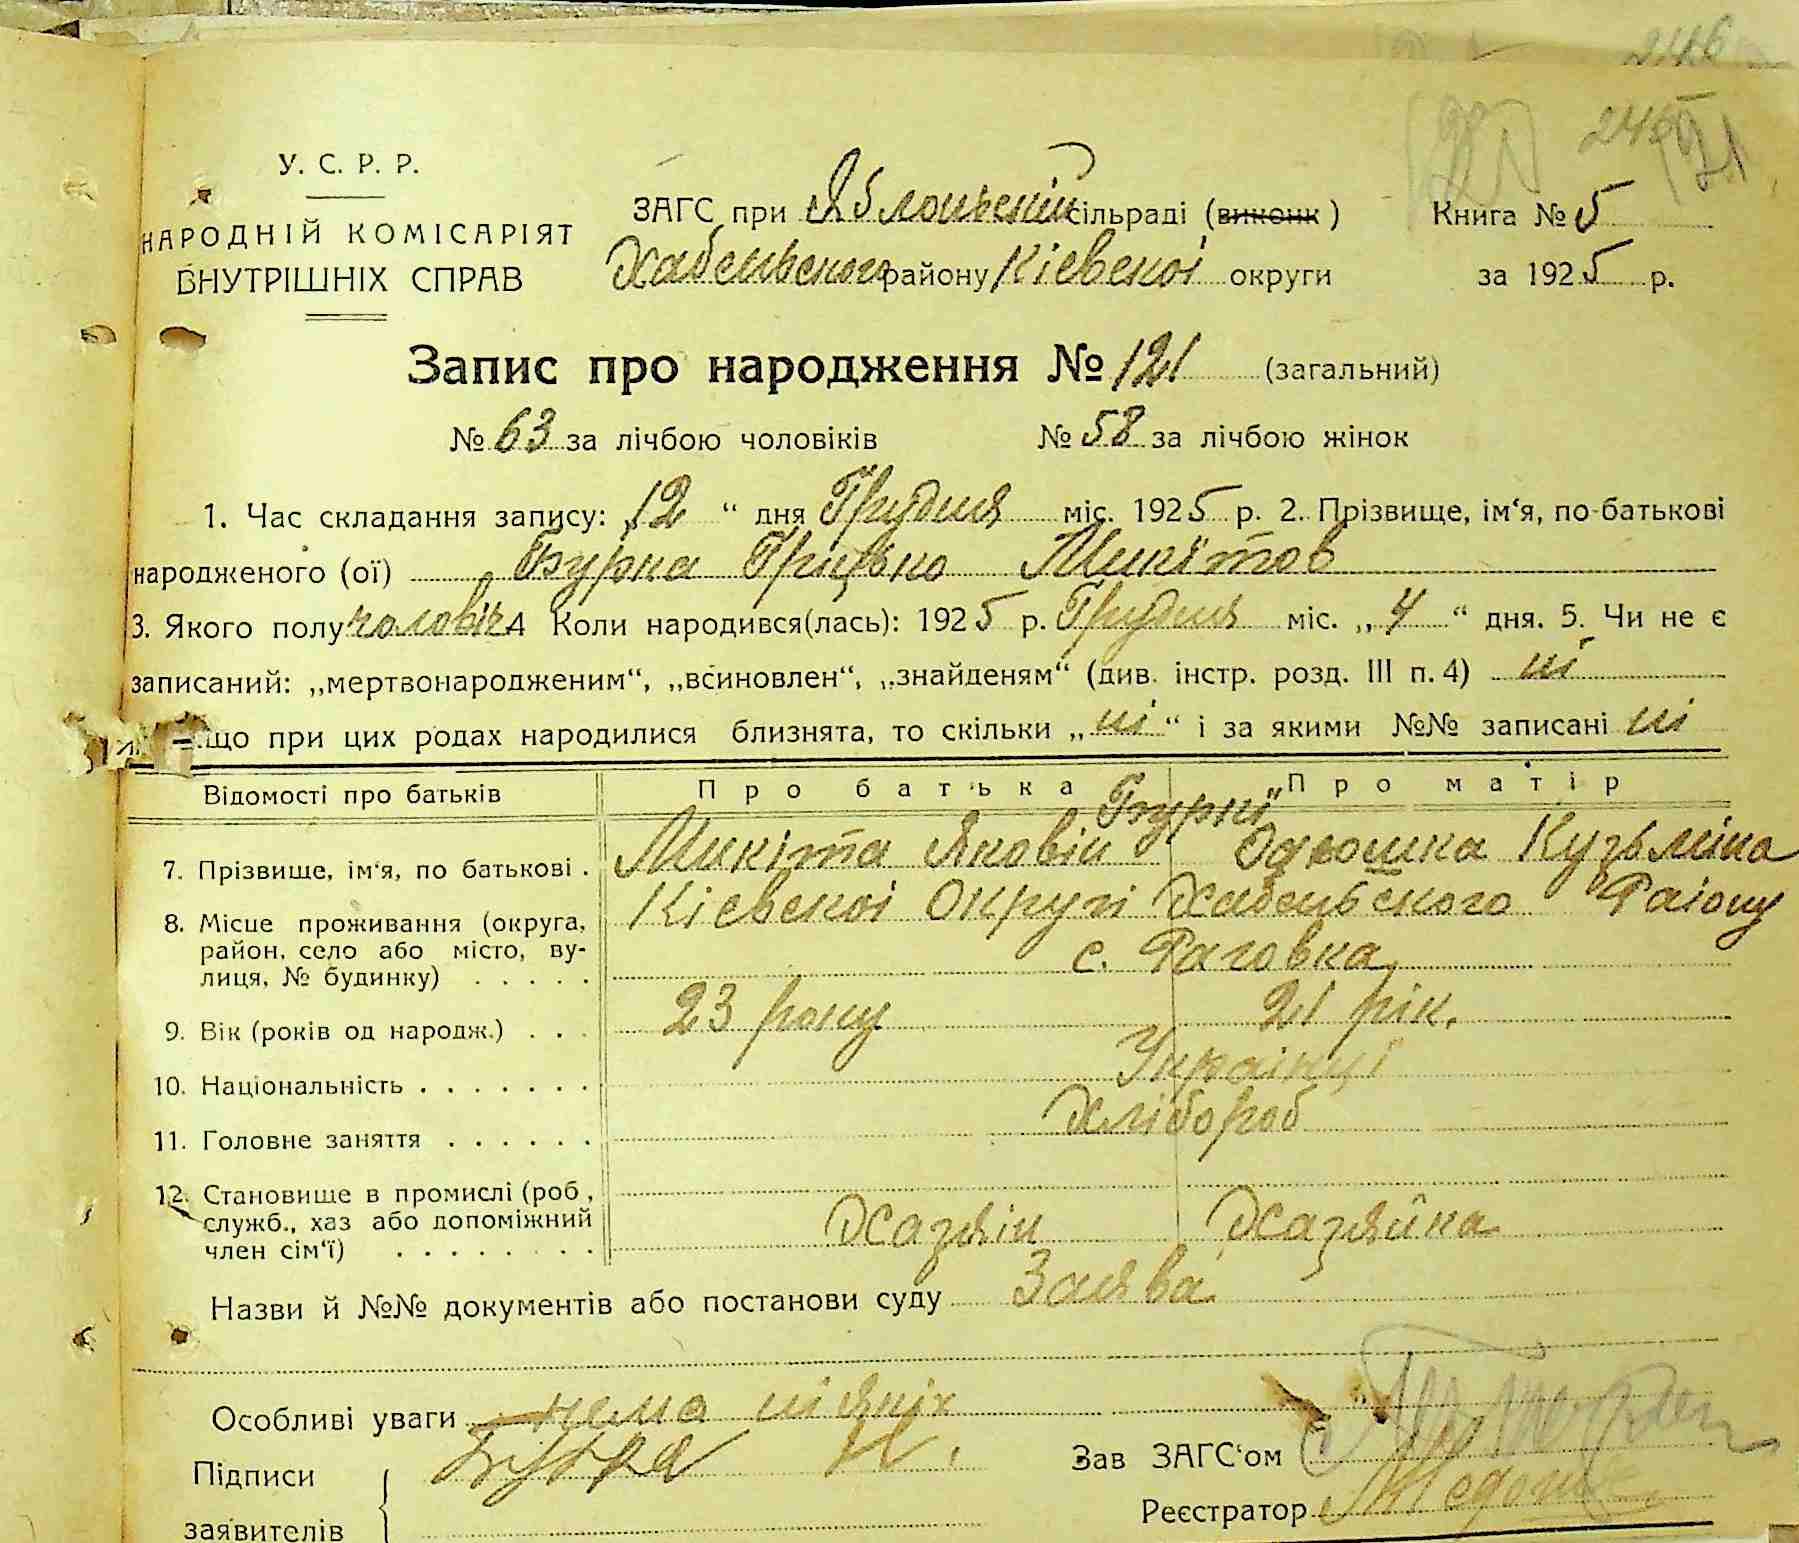 246
246
У. С. Р. Р.
НАРОДНІЙ КОМІСАРІЯТ
ВНУТРІШНІХ СПРАВ
ЗАГС при Яблонській сільраді (виконк)
Хабенського району Кієвскоі округи
Книга № 5
за 1925 р.
Запис про народження № 121 (загальний)
№ 63 за лічбою чоловіків № 58 за лічбою жінок
1. Час складання запису: „12“ дня Грудня міс. 1925 р. 2. Прізвище, ім‘я, по-батькові
народженого (ої) Бурка Грицько Микітов
3. Якого полу чоловіч. 4 Коли народився(лась): 1925 р. Грудня міс. „4“ дня. 5. Чи не є
записаний: „мертвонародженим“, „всиновлен“, „знайденям“ (див. інстр. розд. III п. 4) ні
що при цих родах народилися близнята, то скільки „ні“ і за якими №№ записані ні
Відомості про батьків Про батька Про матір
Буркі
7. Прізвище, ім‘я, по батькові . Микіта Яковін Кузьміна
8. Місце проживання (округа, район, село або місто, ву-
лиця, № будинку) . . . . . Кієвскоі Округі Хабенського Раіону
с. Раговка
9. Вік (років од народж.) . . . 23 року 21 рік.
10. Національність . . . . . . . Украінці
11. Головне заняття . . . . . . Хлібороб
12. Становище в промислі (роб,
служб., хаз або допоміжний
член сім‘ї) . . . . . . . . Хазяін Хазяйка
Назви й №№ документів або постанови суду Заява
Особливі уваги нема ніякіх
Підписи
заявителів
Бурка Н.
Зав ЗАГС‘ом
Реєстратор